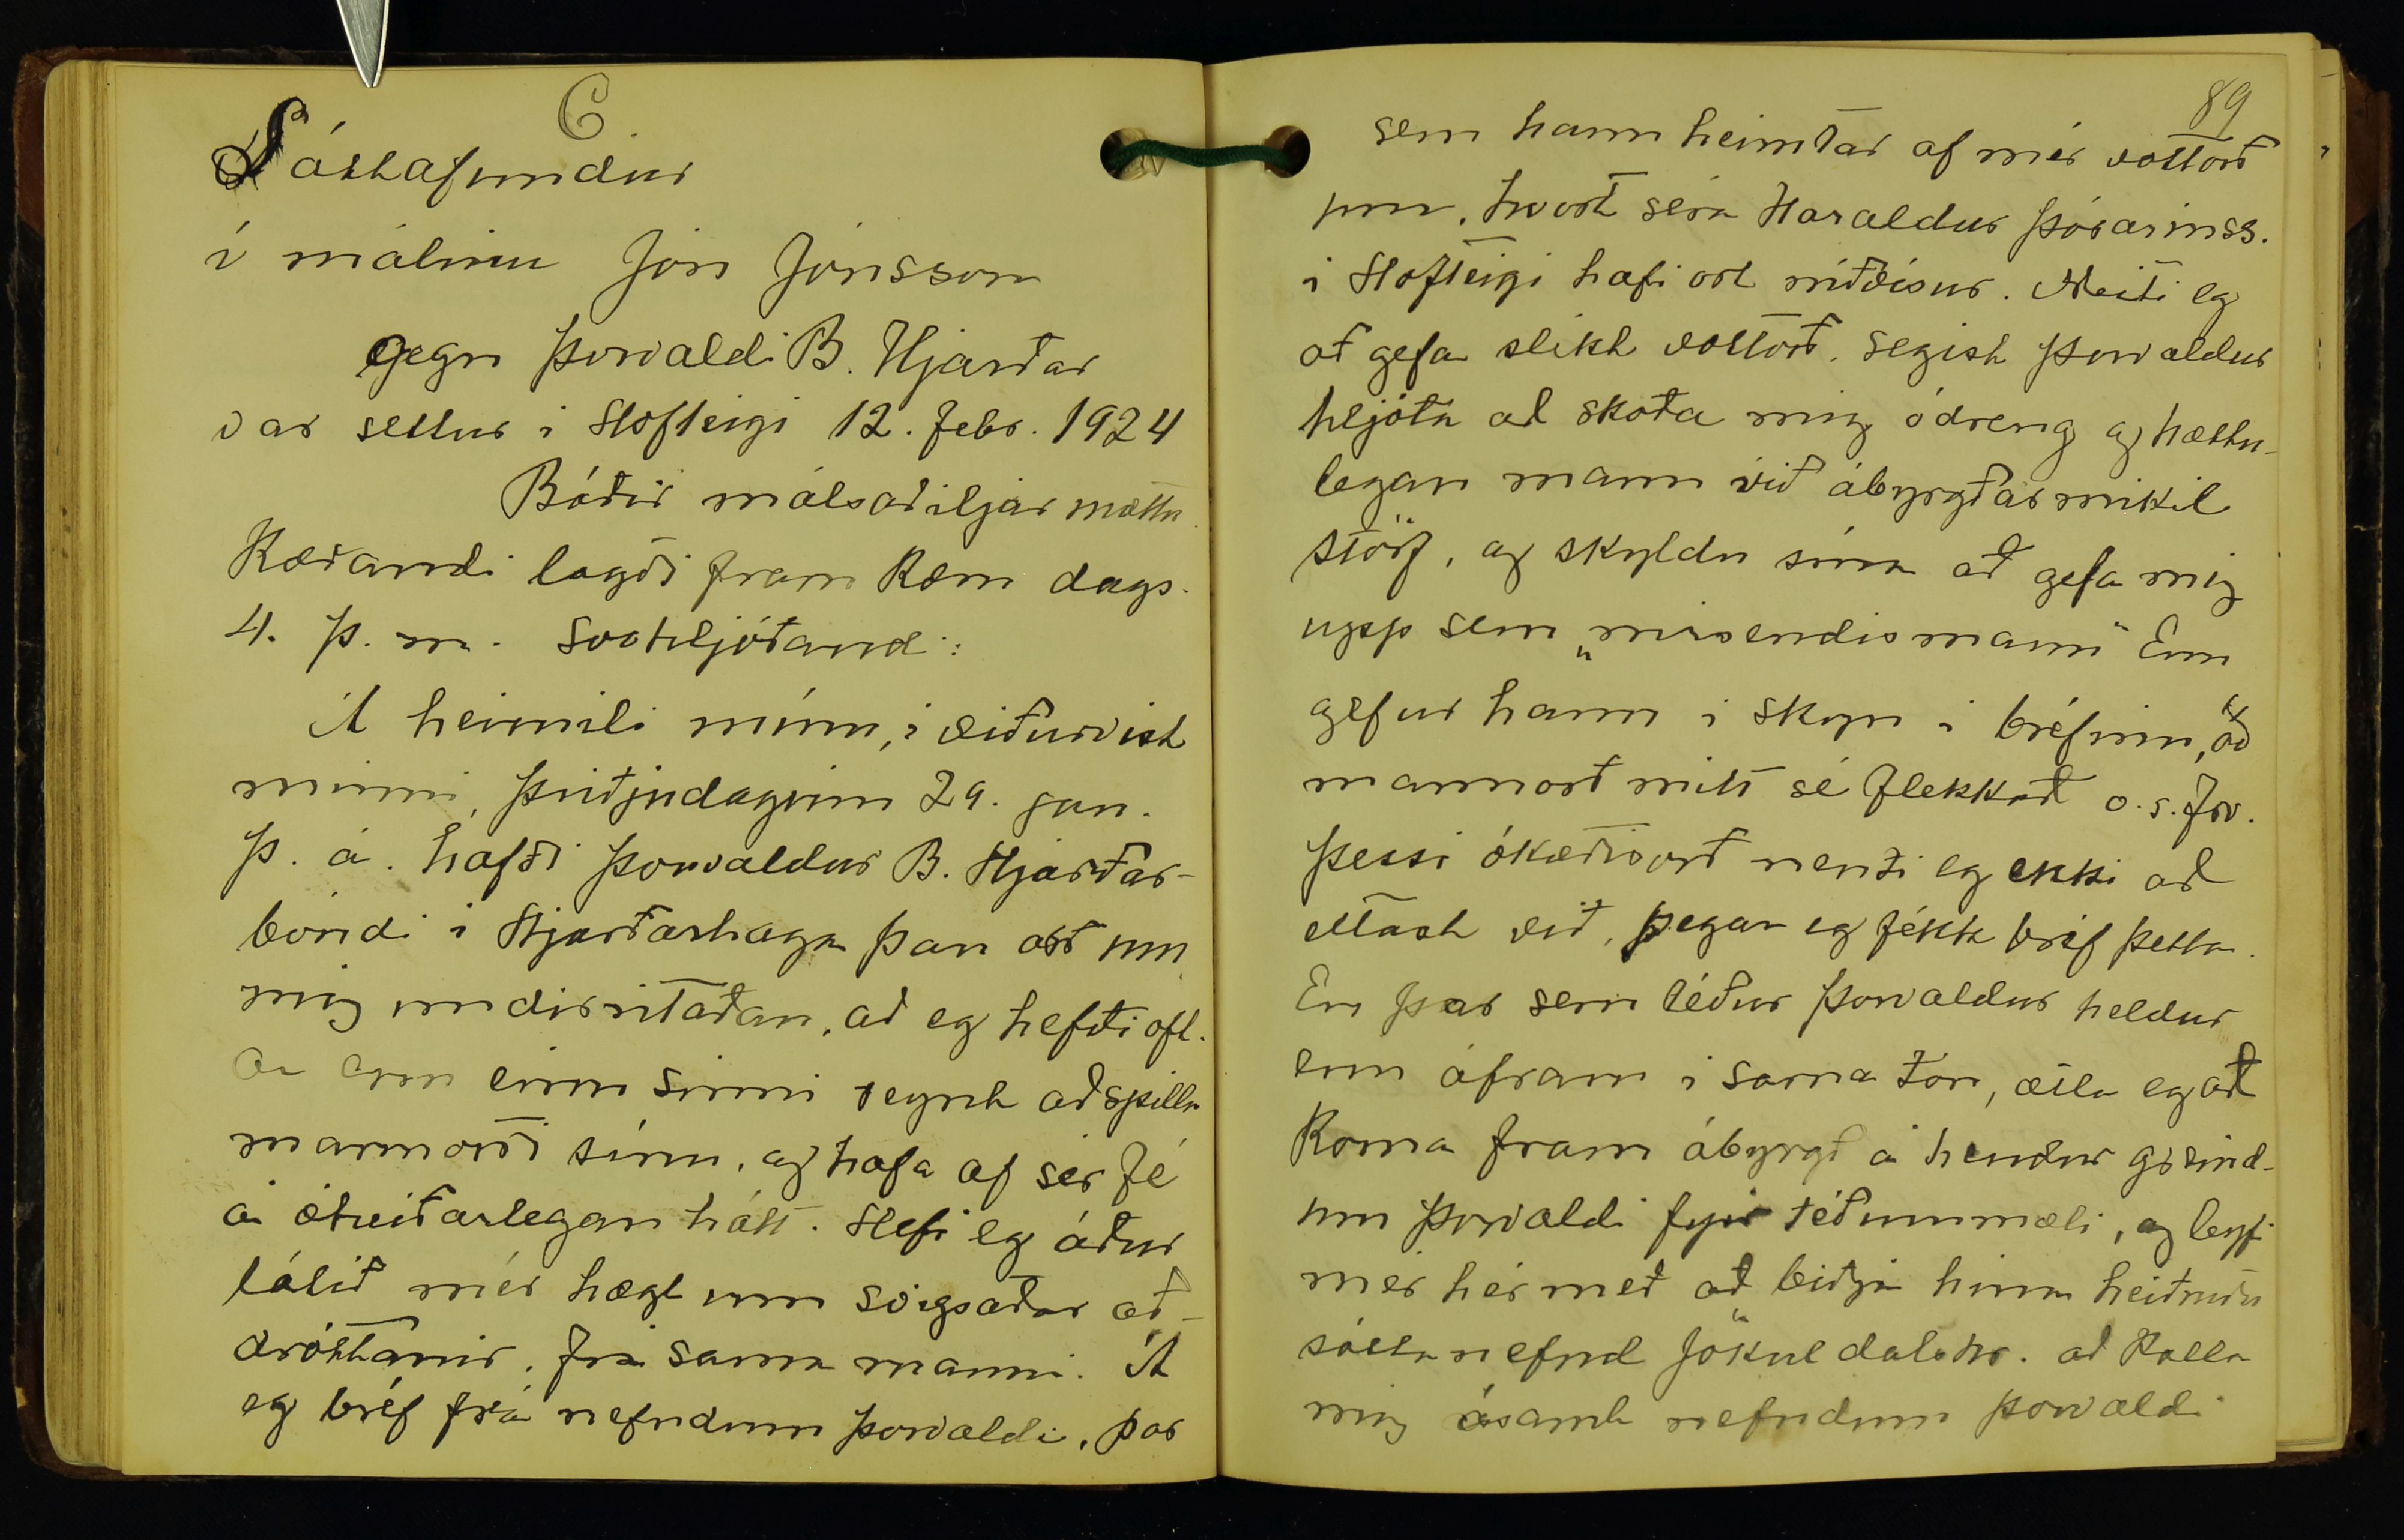 C
Sáttafundur
í málinu Jón Jónsson
gegn Þorvaldi B. Hjarðar
var settur í Hofteigi 12. febr. 1924
Báðir málsaðiljar mættu.
Kærandi lagði fram kæru dags.
4. þ. m. svohljóðand:
Á heimili mínu, í viðurvist
minni, þriðjudaginn 29. jan.
þ. á. hafði Þorvaldur B. Hjarðar-
bóndi í Hjarðarhaga þau orð um
mig undirritaðan, að eg hefði oft-
ar enn einu sinni reynt að spilla
mannorði sínu, og hafa af sér fé
á óheiðarlegan hátt. Hefi eg áður
látið mér hægt um svigsaðar að-
dróttanir, frá sama manni. Á
eg bréf frá nefndum Þorvaldi, þar
89
sem hann heimtar af mér vottorð
um, hvort séra Haraldur Þórarinss.
í Hofteigi hafi ort níðvísur. Neiti eg
að gefa slíkt vottorð, segist Þorvaldur
hljóta að skoða mig ódreng og hættu-
legan mann við ábyrgðarmikil
störf, og skyldu sína að gefa mig
upp sem „misendismann" Enn
gefur hann í skyn í bréfinu, að
mannorð mitt sé flekkað o.s.frv.
Þessi ókvæðisorð nenti eg ekki að
eltast við, þegar eg fékk bréf þetta.
En þar sem téður Þorvaldur heldur
enn áfram í sama tón, ætla eg að
koma fram ábyrgð á hendur greind-
um Þorvaldi fyrir téð ummæli, og leyfi
mér hér með að biðja hina heiðruðu
sáttanefnd Jökuldalshr. að kalla
mig ásamt nefndum Þorvaldi